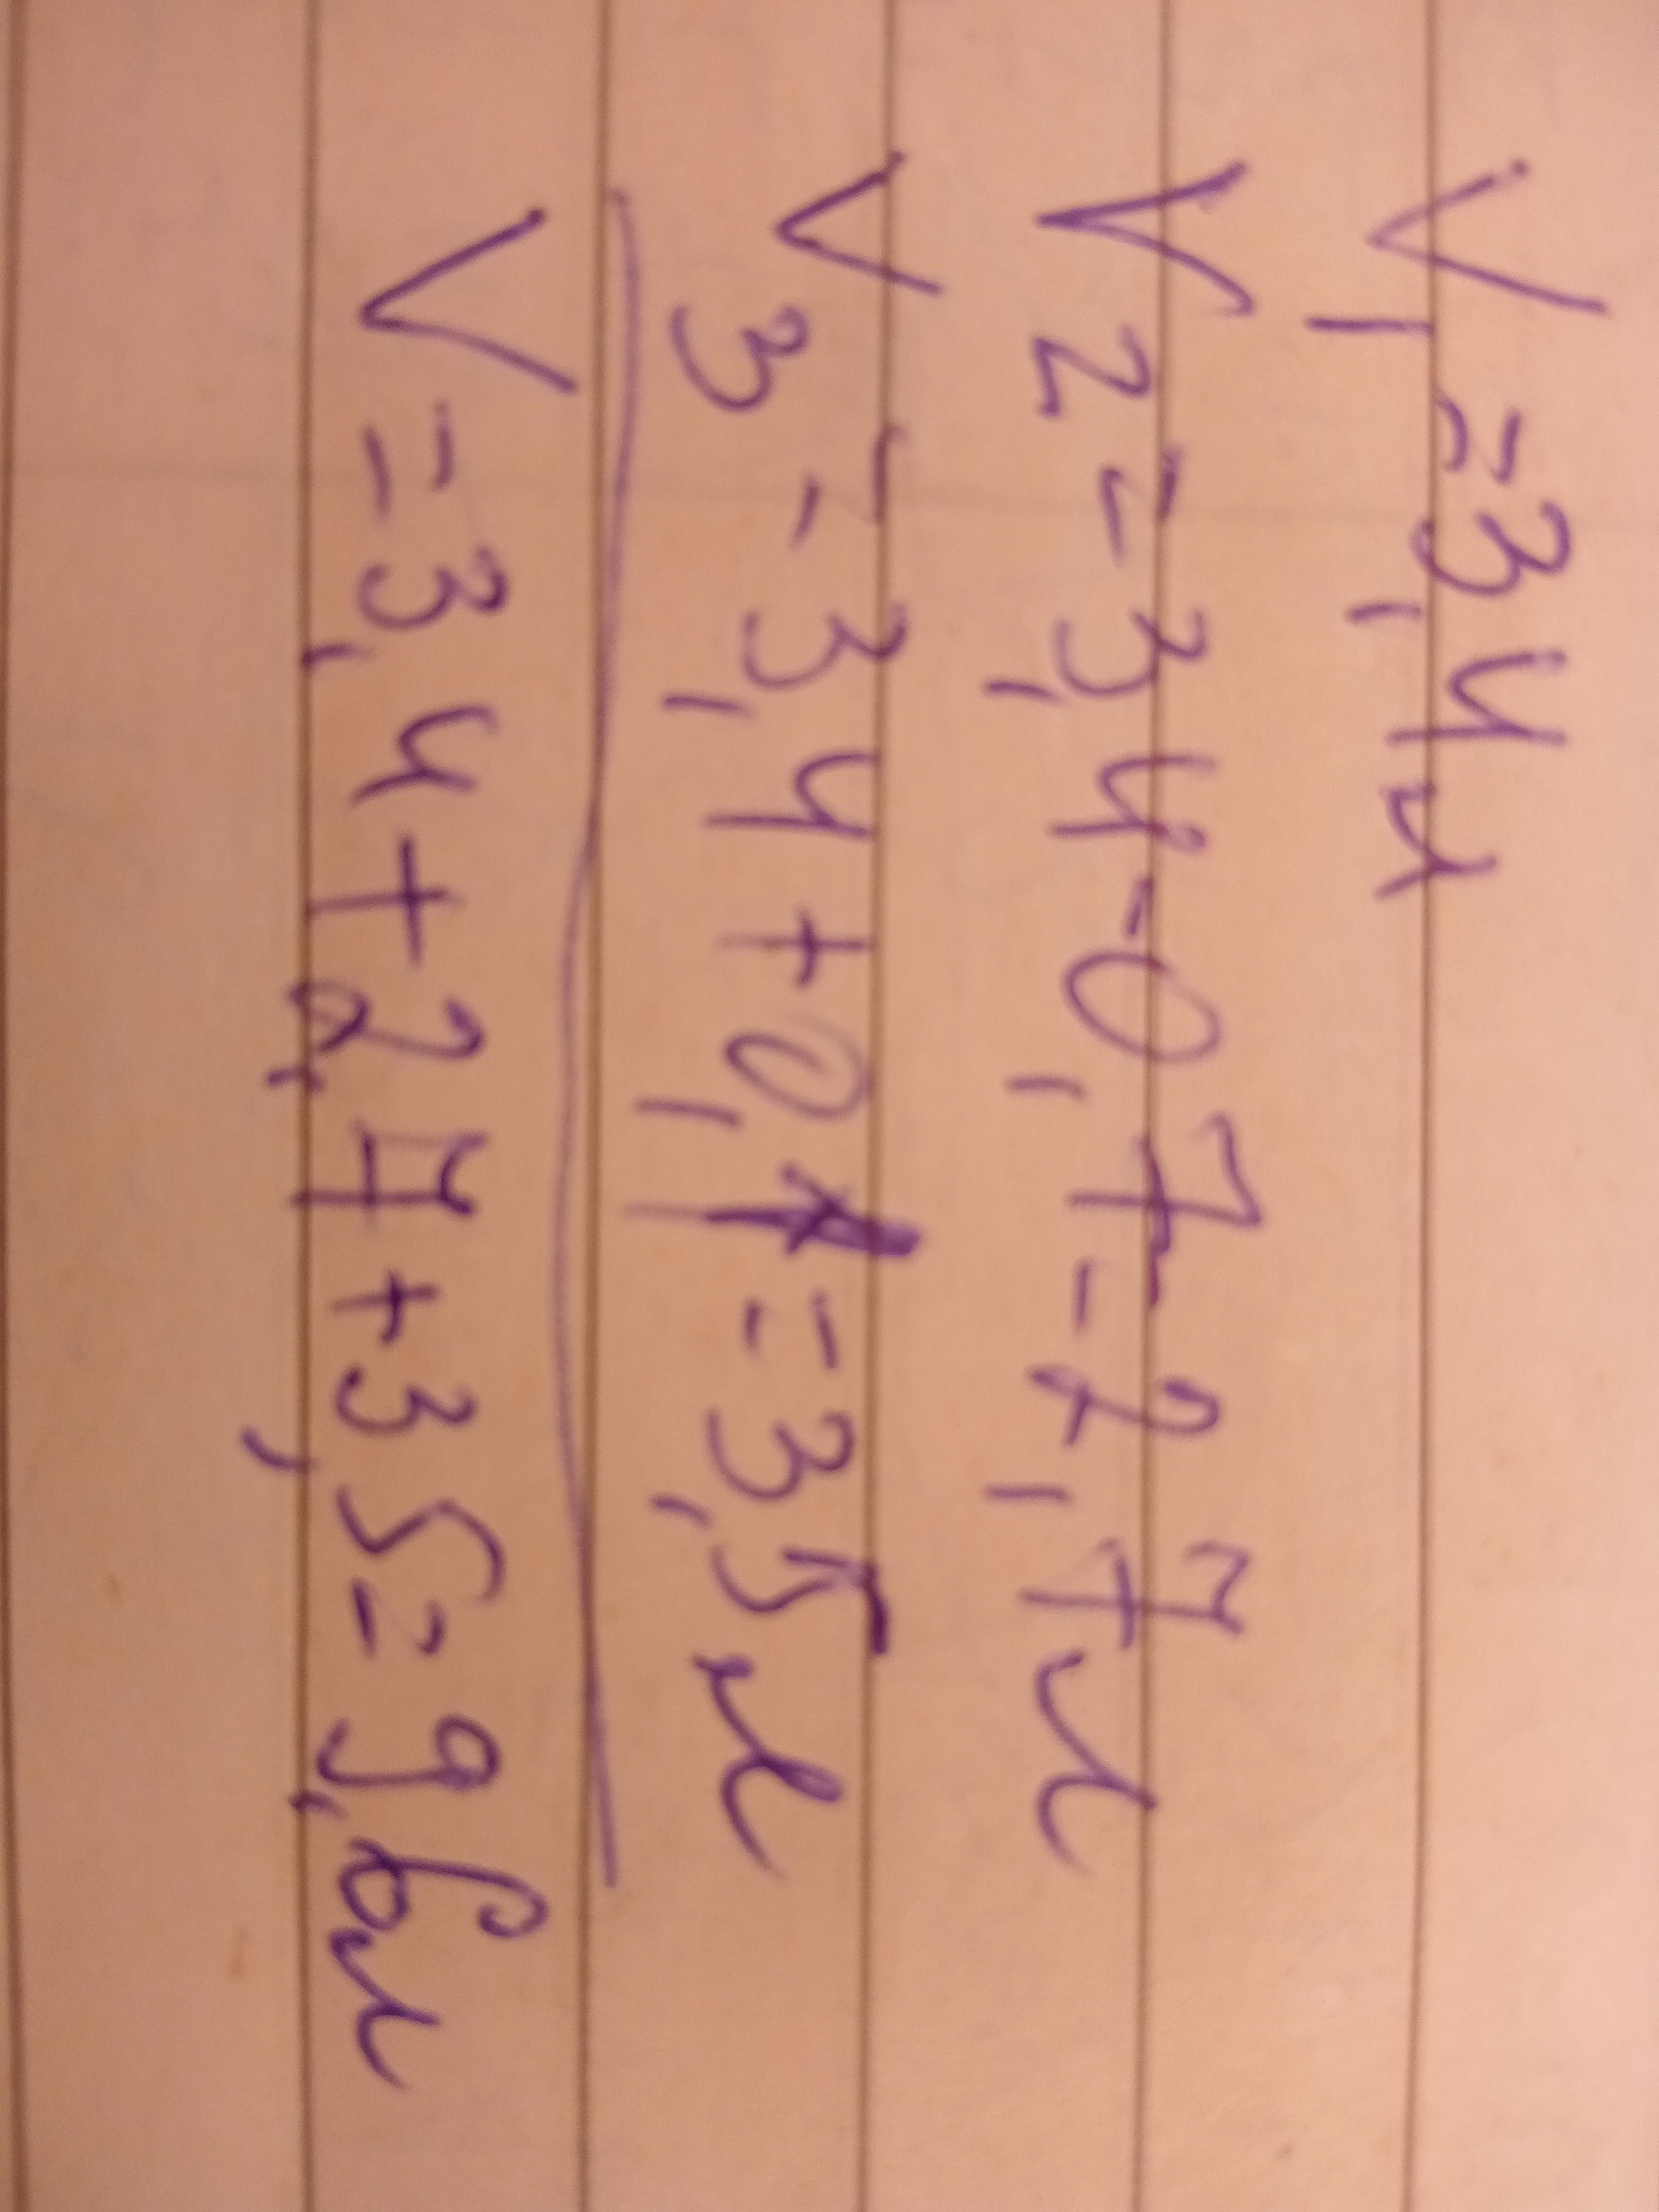 V₁=3,4л
V2=3,4-0,7=2,7л
V3=3,4+0,1=3,5л
V=3,4+2,7+3,5=9,6л